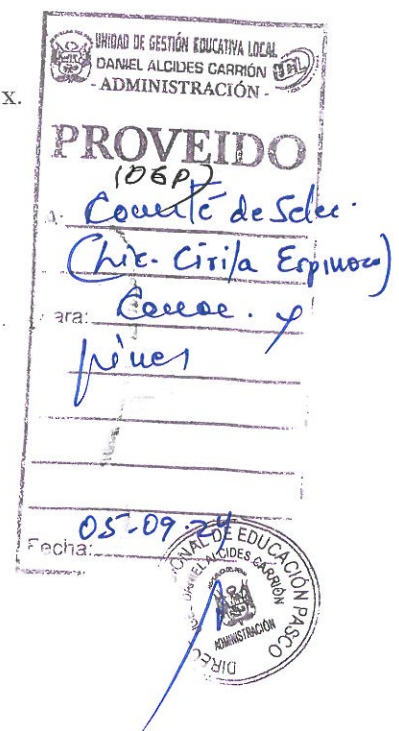 UNIDAD DE GESTIÓN EDUCATIVA LOCAL
DANIEL ALCIDES CARRIÓN
- ADMINISTRACIÓN -
x.
PROVEIDO
(OGP)
A: Comité de Selec.
(Lic. Cirila Espinoza)
Para: Conoc. y
fines
Fecha: 05-09-24
REGIONAL DE EDUCACIÓN PASCO
DANIEL ALCIDES CARRIÓN
ADMINISTRACIÓN